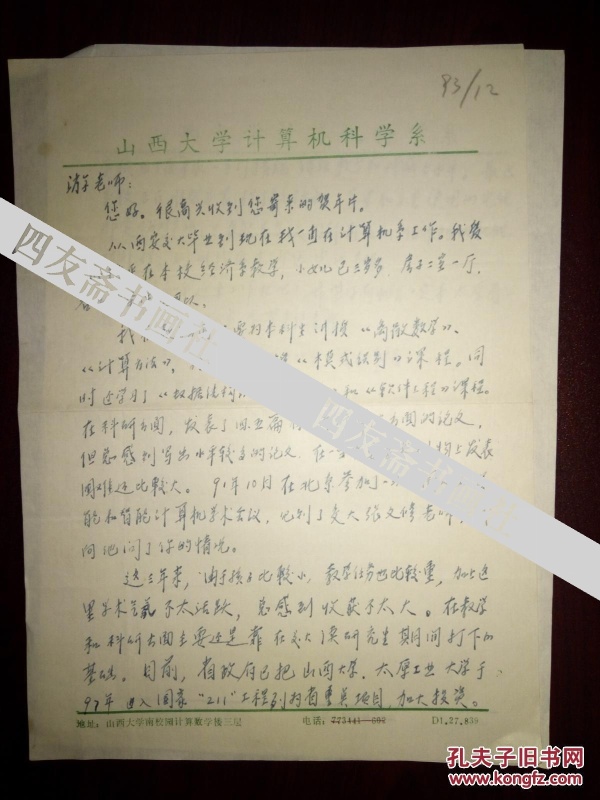 93/12
山西大学计算机科学系
老师:
您好。很高兴收到您寄来的贺年片。
从西安交大毕业到现在我一直在计算机系工作。我爱
在本校经济系教学,小女儿已三岁多,房子二室一厅,
我 要为本科生讲授《离散数学》、
《计算方法》, 《模式识别》课程。同
时还学习了《数据结构 和《软件工程》课程。
在科研方面,发表了四五篇 方面的论文,
但总感到写出水平较高的论文,在一 上发表
困难还比较大。91年10月在北京参加
能和智能计算机学术会议,见到了交大张文修老师
间他问了你的情况。
这三年来,由于孩子比较小,教学任务也比较重,加上这
里学术气氛不太活跃,总感到收获不太大。在教学
和科研方面主要还是靠在交大读研究生期间打下的
基础。目前,省政府已把山西大学、太原工业大学于
97年进入国家“211”工程列为省重点项目,加大投资。
地址:山西大学南校湖计算数学楼三层 电话:773441—692 D1.27.838
四友斋书画社
四友斋书画社
孔夫子旧书网
www.kongfz.com